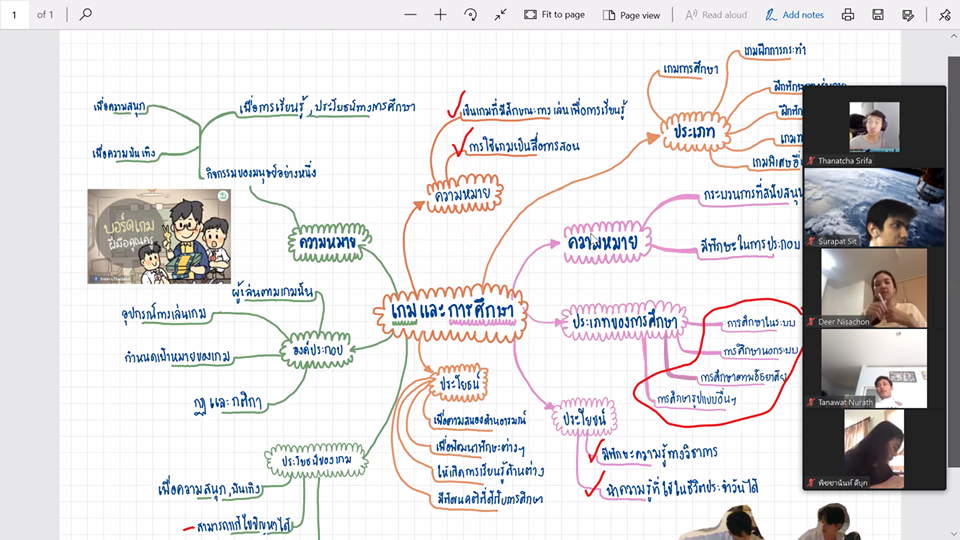 1 of 1
Fit to page
Page view
Read aloud
Add notes
เกมฝึกการกระทำ
เกมการศึกษา
เพื่อความสนุก
เพื่อการเรียนรู้, ประโยชน์ทางการศึกษา
เป็นเกมที่มีลักษณะการเล่นเพื่อการเรียนรู้
ประเภท
การใช้เกมเป็นสื่อการสอน
เพื่อความบันเทิง
Thanatcha Srifa
กิจกรรมของมนุษย์อย่างหนึ่ง
ความหมาย
กระบวนการที่สนับสนุน
บอร์ดเกม
ปีมือคุณครู
ความหมาย
ความหมาย
มีทักษะในการประกอบ
Surapat Sit
ผู้เล่นตามเกมนั้น
เกมและการศึกษา
อุปกรณ์การเล่นเกม
ประเภทของการศึกษา
การศึกษาในระบบ
Deer Nisachon
องค์ประกอบ
กำหนดเป้าหมายของเกม
การศึกษานอกระบบ
การศึกษาตามอัธยาศัย
ประโยชน์
กฎ และ กติกา
การศึกษารูปแบบอื่นๆ
Tanawat Nurath
เพื่อตอบสนองด้านอารมณ์
ประโยชน์
เพื่อพัฒนาทักษะต่างๆ
มีทักษะความรู้ทางวิชาการ
ประโยชน์ของเกม
ให้เกิดการเรียนรู้ด้านต่าง
พิชชานันท์ ดีบุก
เพื่อความสนุก, บันเทิง
มีทัศนคติที่ดีกับการศึกษา
นำความรู้ที่ใช้ในชีวิตประจำวันได้
สามารถแก้ไขปัญหาได้